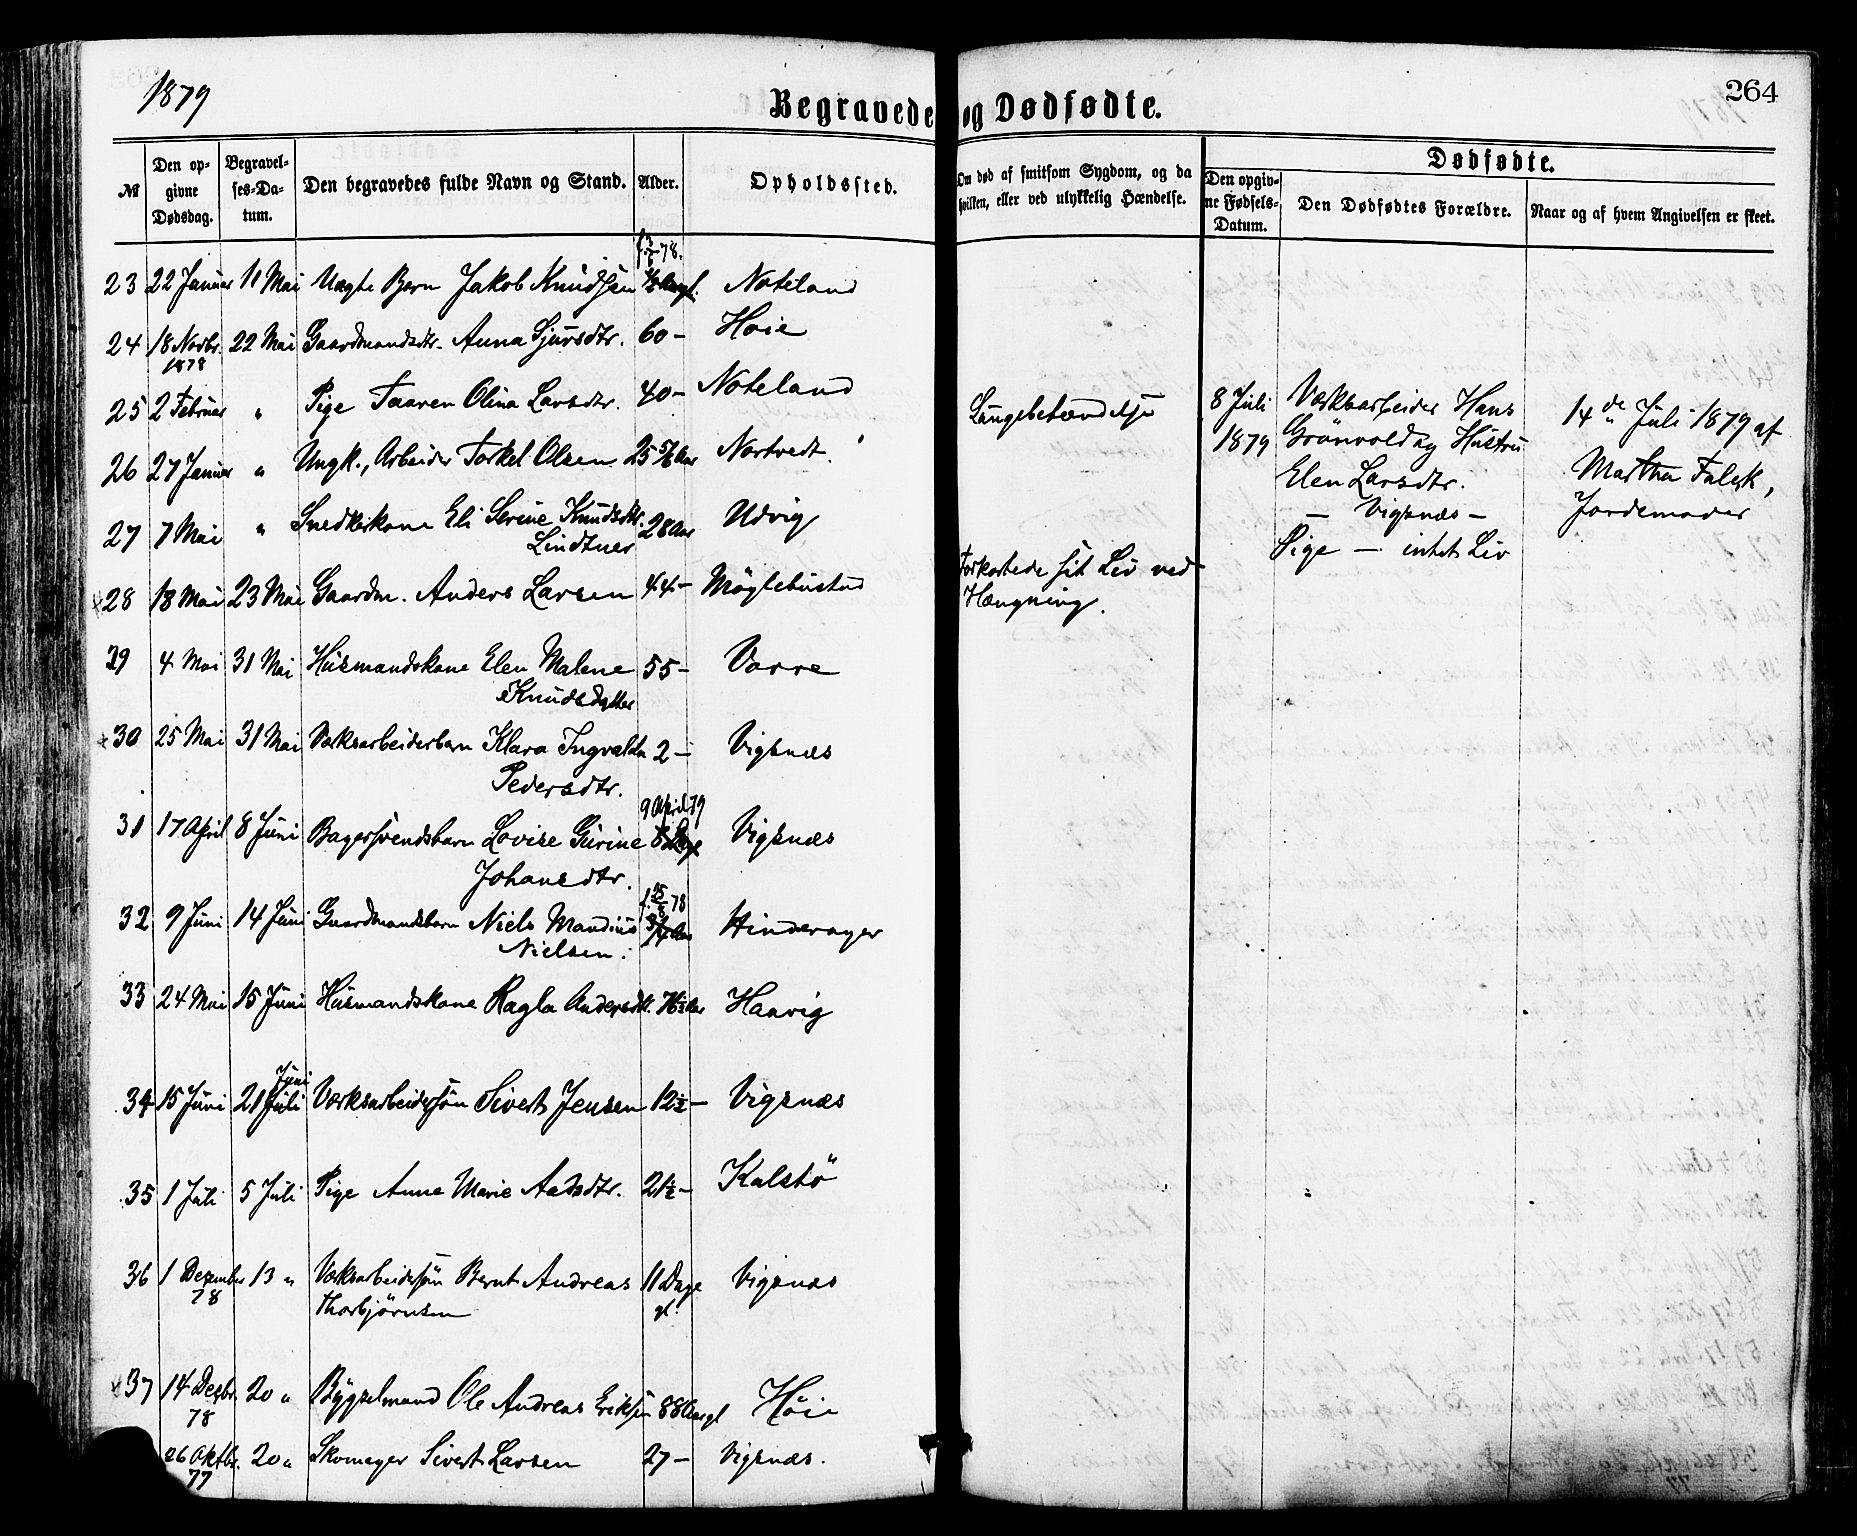 1879
Begravede og Dødfødte.
264
№
Den opgivne Dødsdag.
Begravelses-Datum.
Den begravedes fulde Navn og Stand.
Alder.
Opholdssted.
Om død af smitsom Sygdom, og da hvilken, eller ved ulykkelig Hændelse.
Dødfødte.
Den opgivne Fødsels-Datum.
Den Dødfødtes Forældre.
Naar og af hvem Angivelsen er skeet.
23 22 Januar 11 Mai Uægte Barn Jakob Knudsen Noteland
24 18 Novbr. 1878 22 Mai Gaardmandsdtr. Anna Sjursdtr. 60 - Høie
25 2 Februar " Pige Taaren Olina Larsdtr. 40 - Noteland Lungebetændelse
26 27 Januar " Ungk., Arbeider Torkel Olsen 25 5/6 Aar Nortvedt.
27 7 Mai " Snedkerkone Eli Serine Knudsdtr. Lindtner 28 Aar Udvig
28 18 Mai 23 Mai Gaardm. Anders Larsen 44 - Møglebustud Forkortede sit Liv ved Hængning.
29 4 Mai 31 Mai Husmandskone Elen Malene Knudsdatter 55 - Vorre
30 25 Mai 31 Mai Værksarbeiderbarn Klara Ingvalda Pedersdtr. 2 - Vigsnæs
31 17 April 8 Juni Bagersvendsbarn Lovise Gurine Johansdtr. 9 April 79 8 Dage Vigsnæs
32 9 Juni 14 Juni Gaardmandsbarn Niels Mandius Nielsen. 3/4 Aar Hinderager
33 24 Mai 15 Juni Husmandskone Ragla Andersdtr. 76½ Aar Haavig
34 15 Juni 21 Juli Juni Værksarbeidersøn Sivert Jensen 12½ - Vigsnæs
35 1 Juli 5 Juli Pige Anne Marie Aadsdtr. 21½ - Kalstö
36 1 Dezember 78 13 " Værksarbeidersøn Bernt Andreas Thorbjørnsen 11 Dage gl. Vigsnæs
37 14 Dezbr. 78 20 " Bygselmand Ole Andreas Eriksen 88 Aar gl Høie
26 Oktbr. 77 20 " Skomager Sivert Larsen 27 - Vigsnæs.
8 Juli 1879
Værksarbeider Hans
Grønvold og Hustru
Elen Larsdtr.
- Vigsnæs -
Pige - intet Liv
14de Juli 1879 af
Martha Falck,
Jordemoder